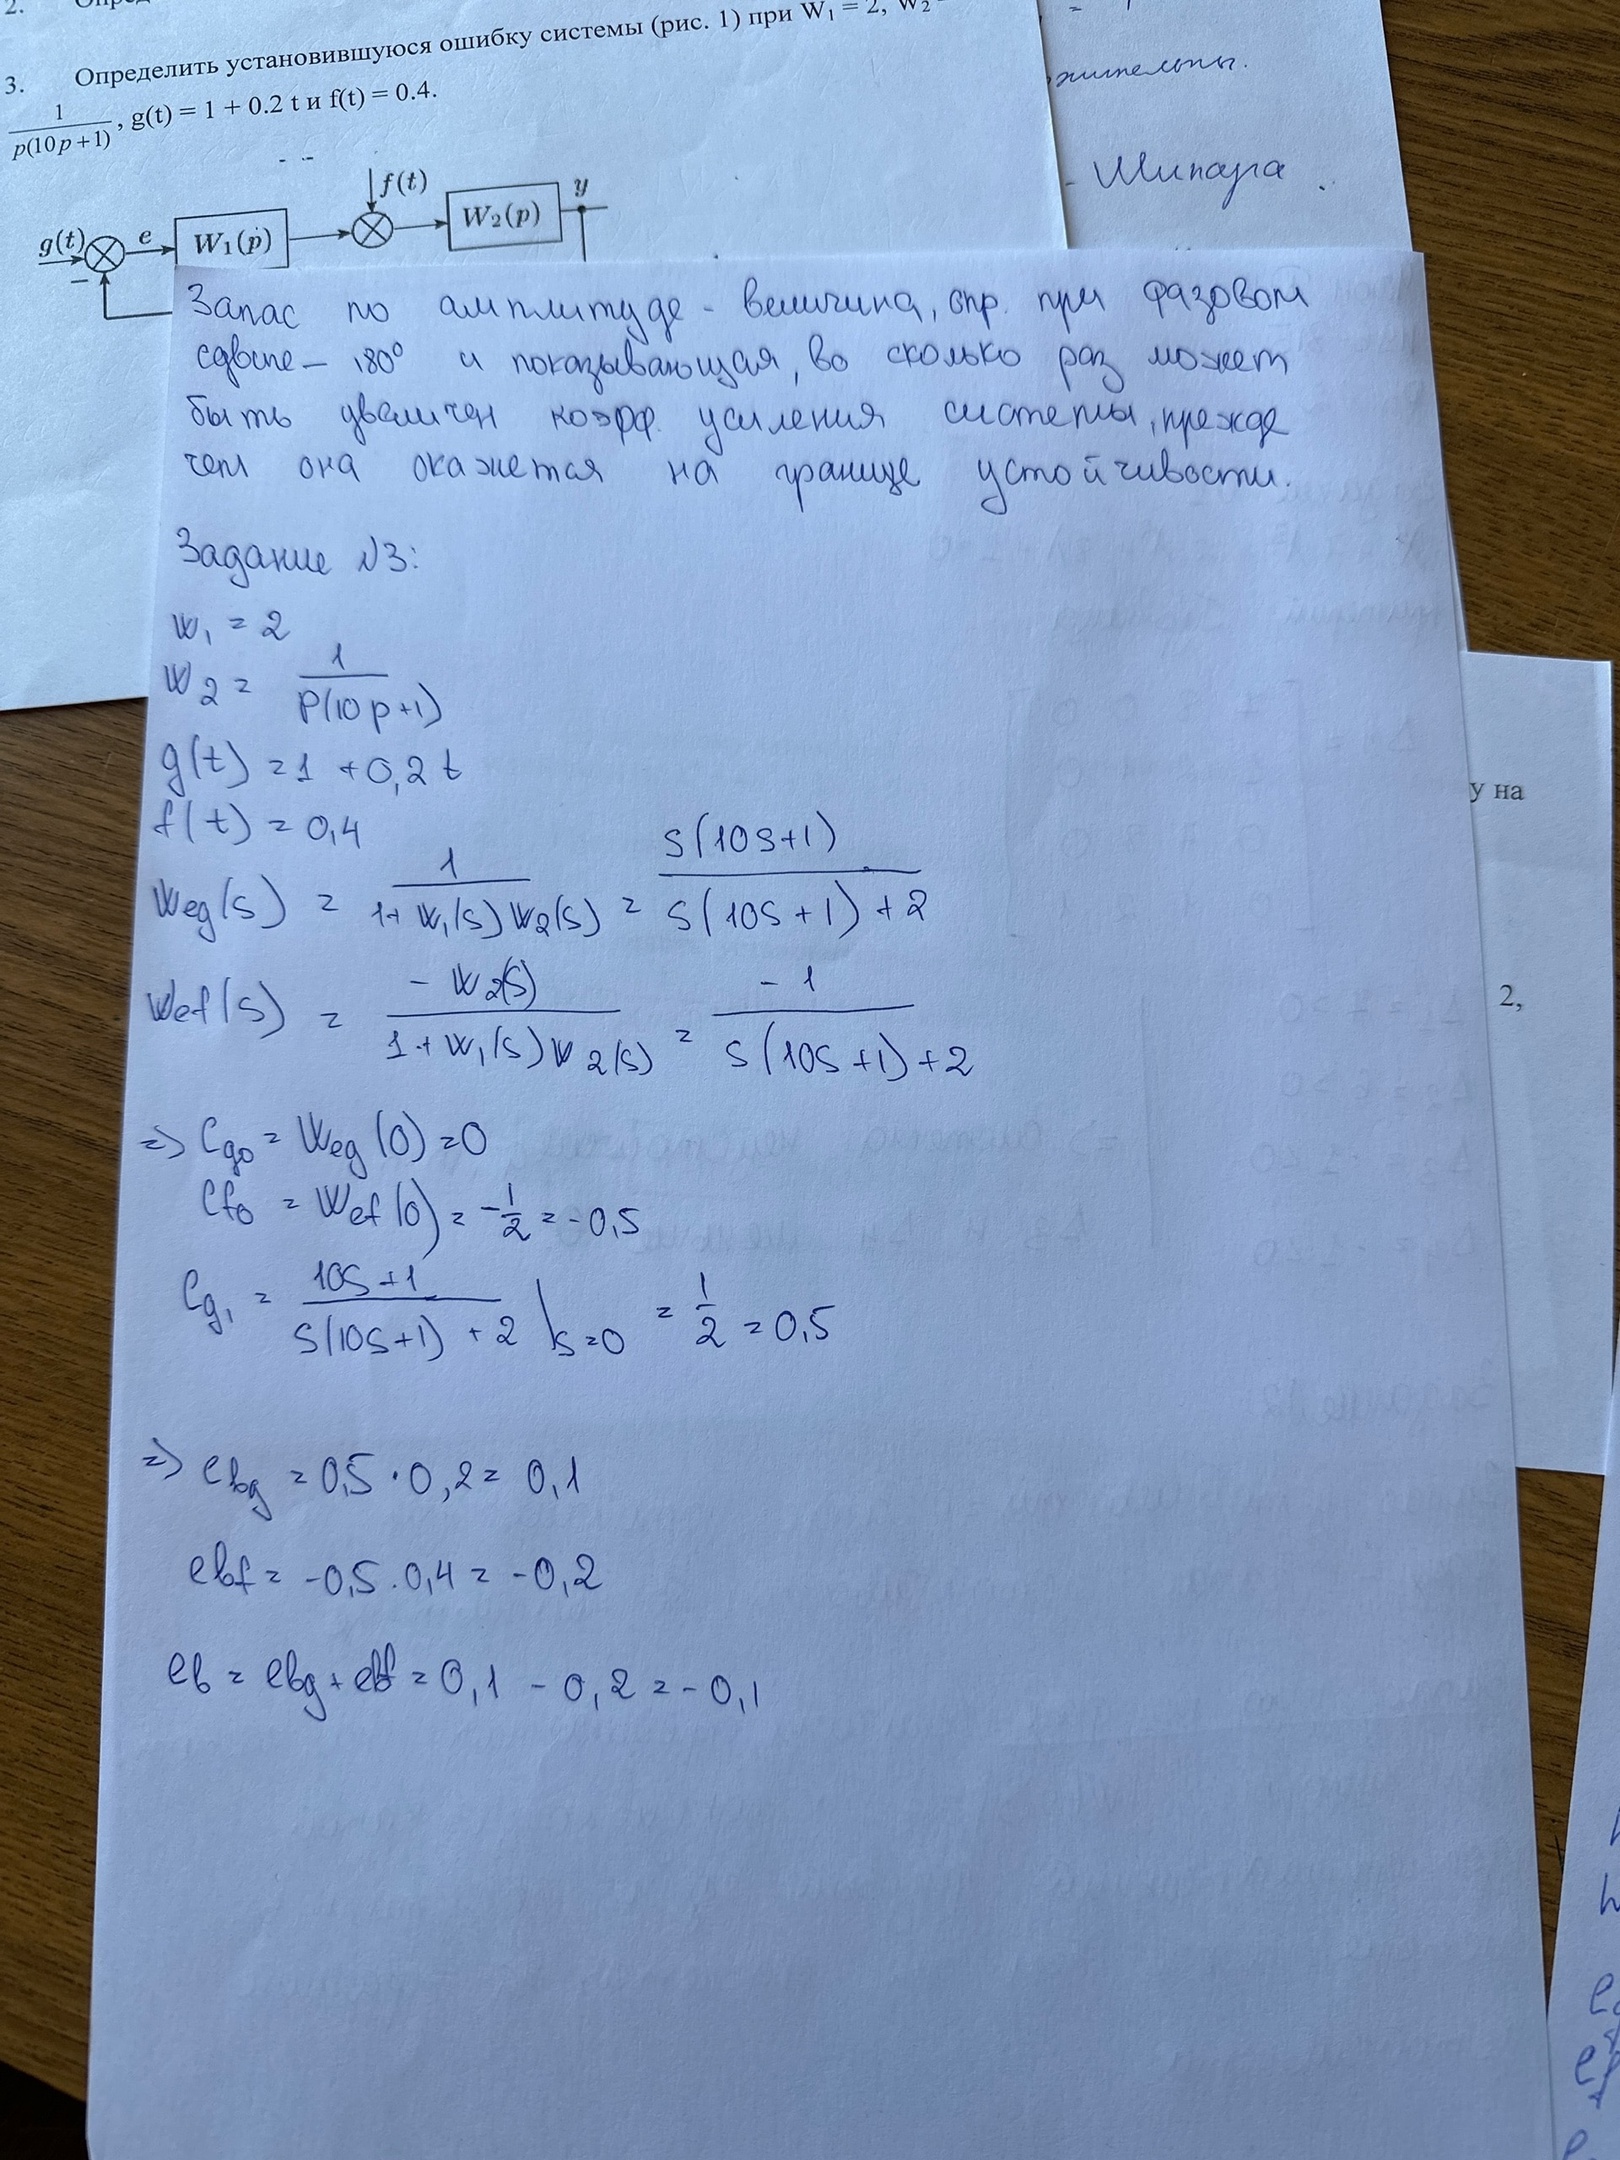 2.
3. Определить установившуюся ошибку системы (рис. 1) при W₁ = 2, W₂
1/(p(10p+1)), g(t) = 1 + 0.2 t и f(t) = 0.4.
f(t)
y
g(t) e W₁(p) W₂(p)
−
жительны.
- Шипара
Запас по амплитуде - величина, опр. при фазовом
сдвиге - 180° и показывающая, во сколько раз может
быть увеличен коэфф. усиления системы, прежде
чем она окажется на границе устойчивости.
Задание №3:
W₁ = 2
W₂ = 1/(p(10p+1))
g(t) = 1 + 0,2 t
f(t) = 0,4
Weg(s) = 1/(1+W₁(s)W₂(s)) = s(10s+1)/(s(10s+1)+2)
Wef(s) = -W₂(s)/(1+W₁(s)W₂(s)) = -1/(s(10s+1)+2)
=> Cg₀ = Weg(0) = 0
Cf₀ = Wef(0) = -1/2 = -0,5
Cg₁ = (10s+1)/(s(10s+1)+2) |s=0 = 1/2 = 0,5
=> eвg = 0,5 · 0,2 = 0,1
eвf = -0,5 . 0,4 = -0,2
eв = eвg + eвf = 0,1 - 0,2 = -0,1
у на
2,